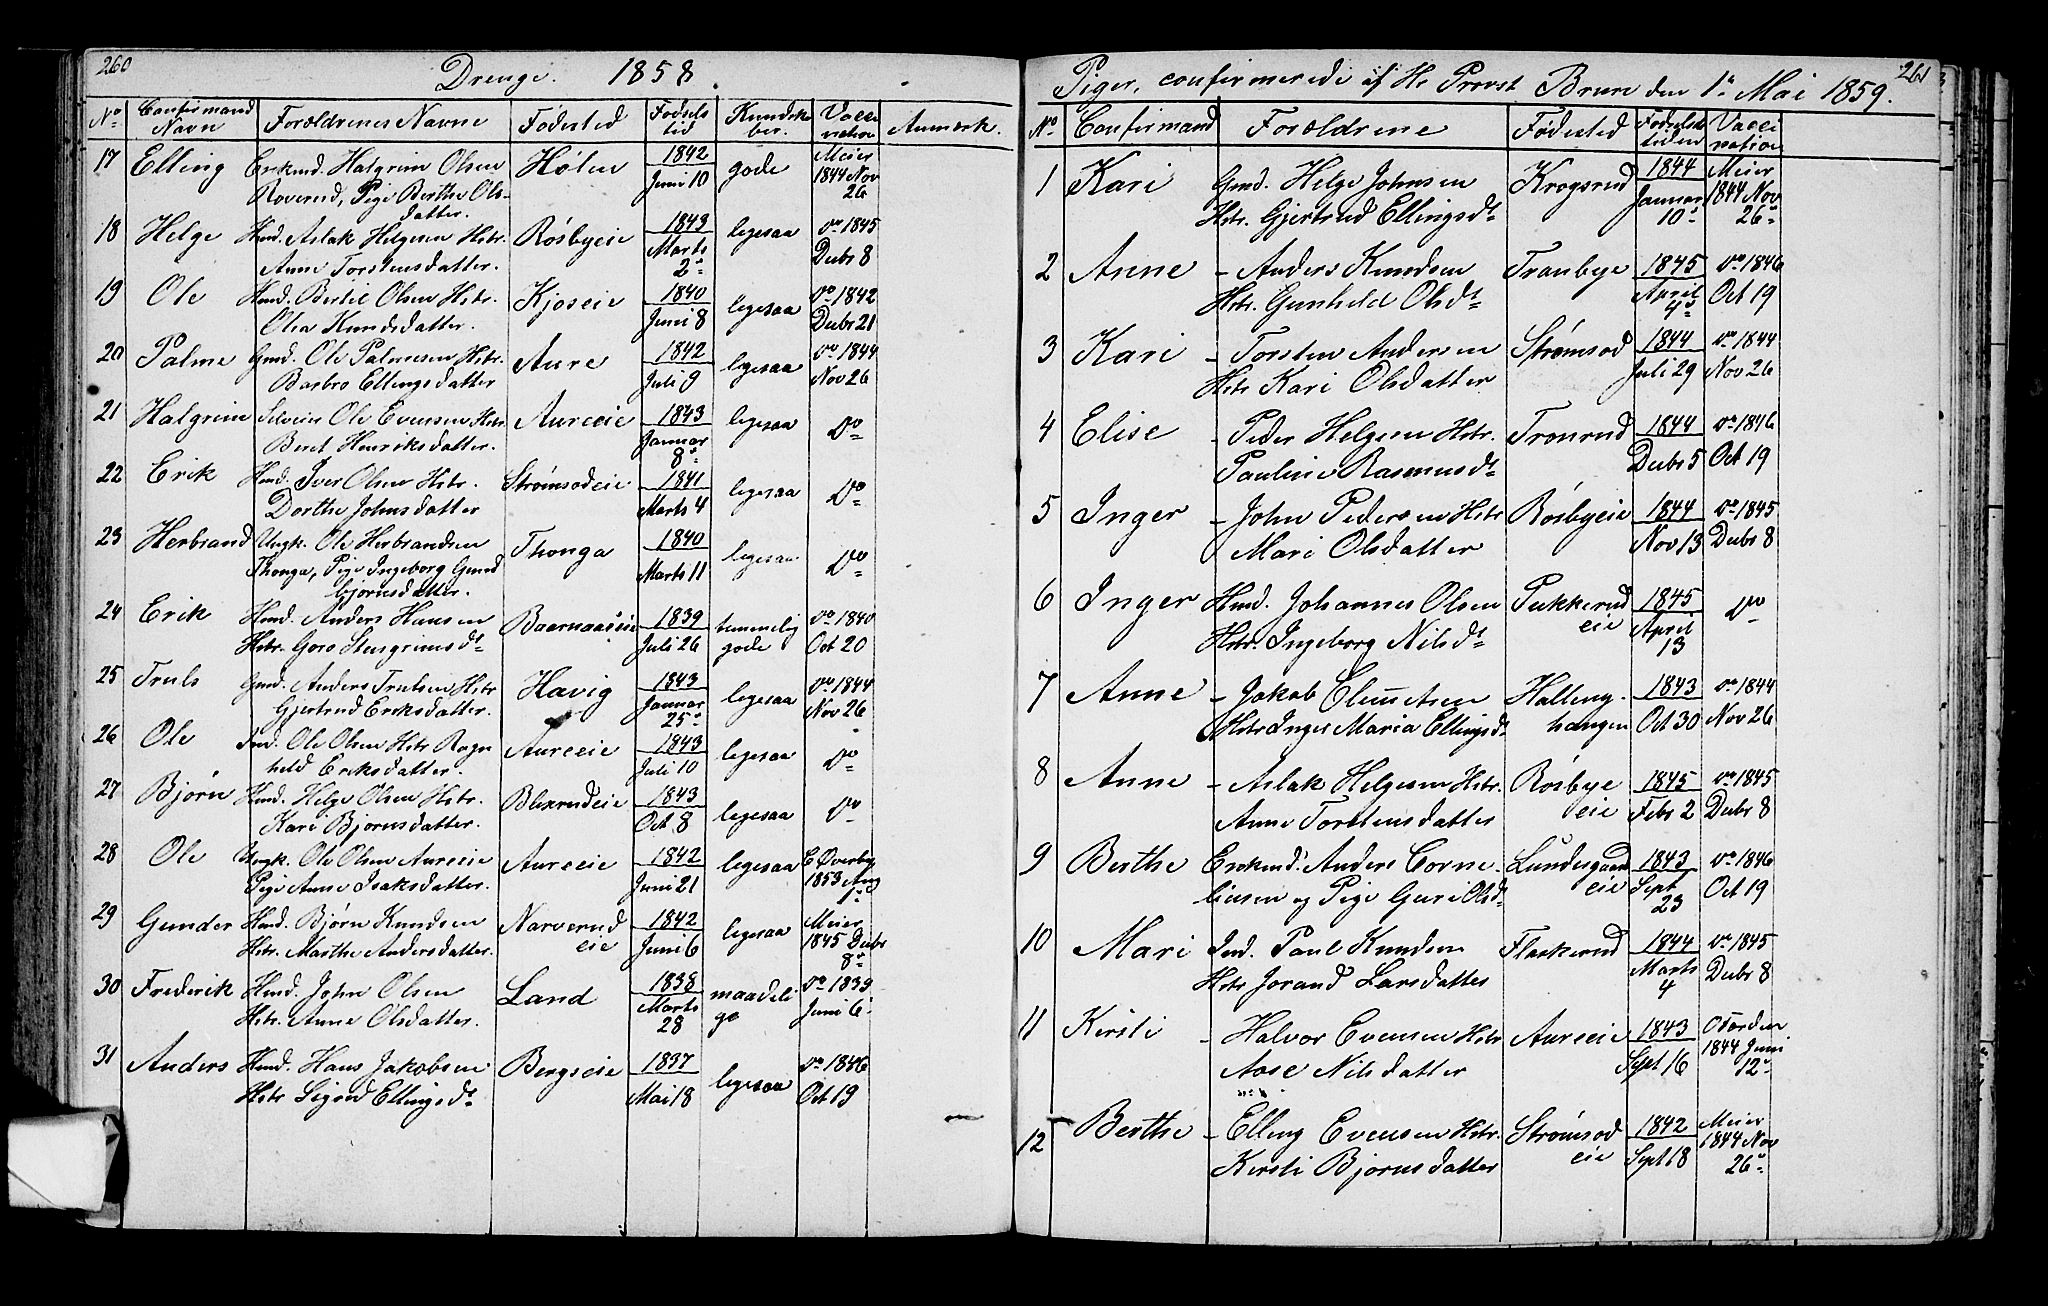 260
Drenge. 1858.
No Confirmand Navn Forældrenes Navne Fødested Fødsels tid Kundsk ber. Vacci nation Anmerk.
17 Elling Enkmd. Halgrim Olsen Hølen 1842 gode Meier
Roverud, Pige Berthe Ols- Juni 10 1844 Nov
datter. 26
18 Helge Hmd. Aslak Helgesen Hstr. Rösbyeie 1843 legesaa Do 1845
Anne Torstensdatter. Marts 2 Decbr 8
19 Ole Hmd. Bertil Olsen Hstr. Kjoseie 1840 legesaa Do 1842
Olea Knudsdatter. Juni 8 Decbr 21
20 Palme Gmd. Ole Palmesen Hstr. Aure 1842 legesaa Do 1844
Barbro Ellingsdatter Juli 9 Nov 26
21 Halgrim Selveier Ole Evensen Hstr Aureeie 1843 legesaa Do
Beret Henriksdatter. Januar 8
22 Erik Hmd. Iver Olsen Hstr. Strømsodeie 1841 legesaa Do
Dorthe Johnsdatter Marts 4
23 Herbrand Ungk. Ole Herbrandsen Thonga 1840 legesaa Do
Thonga, Pige Ingeborg Gund Marts 11
bjørnsdatter.
24 Erik Hmd. Anders Hansen Baarnaaseie 1839 temmelig Do 1840
Hstr. Goro Stengrimsdt Juli 26 gode Oct 20
25 Truls Gmd. Anders Trulsen Hstr Havig 1843 legesaa Do 1844
Gjertrud Eriksdatter. Januar 25 Nov 26
26 Ole Ind. Ole Olsen Hstr Ragn Aureeie 1843 legesaa Do
hild Eriksdatter. Juli 10
27 Bjørn Hmd. Helge Olsen Hstr. Blexrudeie 1843 legesaa Do
Kari Bjornsdatter. Oct 8
28 Ole Ungk. Ole Olsen Aureeie Aureeie 1842 legesaa C Øverby
Pige Anne Isaksdatter. Juni 21 1853 Aug 1
29 Gunder Hmd. Bjørn Knudsen Narverud 1842 legesaa Meier
Hstr. Marthe Andersdatter. eie Juni 6 1845 Decbr 8
30 Frederik Hmd. John Olsen Land 1838 maadeli Do 1839
Hstr. Anne Olsdatter. Marts 28 ge Juni 6
31 Anders Hmd. Hans Jakobsen Bergseie 1837 legesaa Do 1846
Hstr Sigrid Ellingsdt Mai 18 Oct 19
261
Piger, confirmerede af Hr Provst Bruun den 1 Mai 1859.
No Confirmand Forældrene Fødested Fødsels tiden Vacci nation
1 Kari Gmd. Helge Johnsen Krogsrud 1844 Meier
Hstr. Gjertrud Ellingsdt Januar 10 1844 Nov 26
2 Anne - Anders Knudsen Tranbye 1845 Do 1846
Hstr. Gunhild Olsdt April 4 Oct 19
3 Kari - Torsten Andersen Strømsod 1844 Do 1844
Hstr Kari Olsdatter Juli 29 Nov 26
4 Elise - Peder Helgesen Hstr. Tronrud 1844 Do 1846
Pauline Rasmusdt Decbr 5 Oct 19
5 Inger - John Pedersen Hstr Rösbyeie 1844 Do 1845
Mari Olsdatter Nov 13 Decbr 8
6 Inger Hmd. Johannes Olsen Pukkerud 1845 Do
Hstr. Ingeborg Nilsdt eie April 13
7 Anne - Jakob Clemetsen Halleng- 1843 Do 1844
Hstr Inger Maria Ellingsdt hangen Oct 30 Nov 26
8 Anne - Aslak Helgesen Hstr. Rösbye 1845 Do 1845
Anne Torstensdatter eie Febr 2 Decbr 8
9 Berthe Enkemd: Anders Corne Lundesgaard 1843 Do 1846
liusen og Pige Guri Olsd eie Sept 23 Oct 19
10 Mari Ind. Paul Knudsen Flaskerud 1844 Do 1845
Hstr Jorand Larsdatter Marts 4 Decbr 8
11 Kirsti - Halvor Evensen Hstr Aureeie 1843 O Torden
Aase Nilsdatter Sept 16 1844 Juni 12
12 Berthe - Elling Evensen Hstr. Strømsod 1842 Meier
Kirsti Bjørnsdatter eie Sept 18 1844 Nov 26